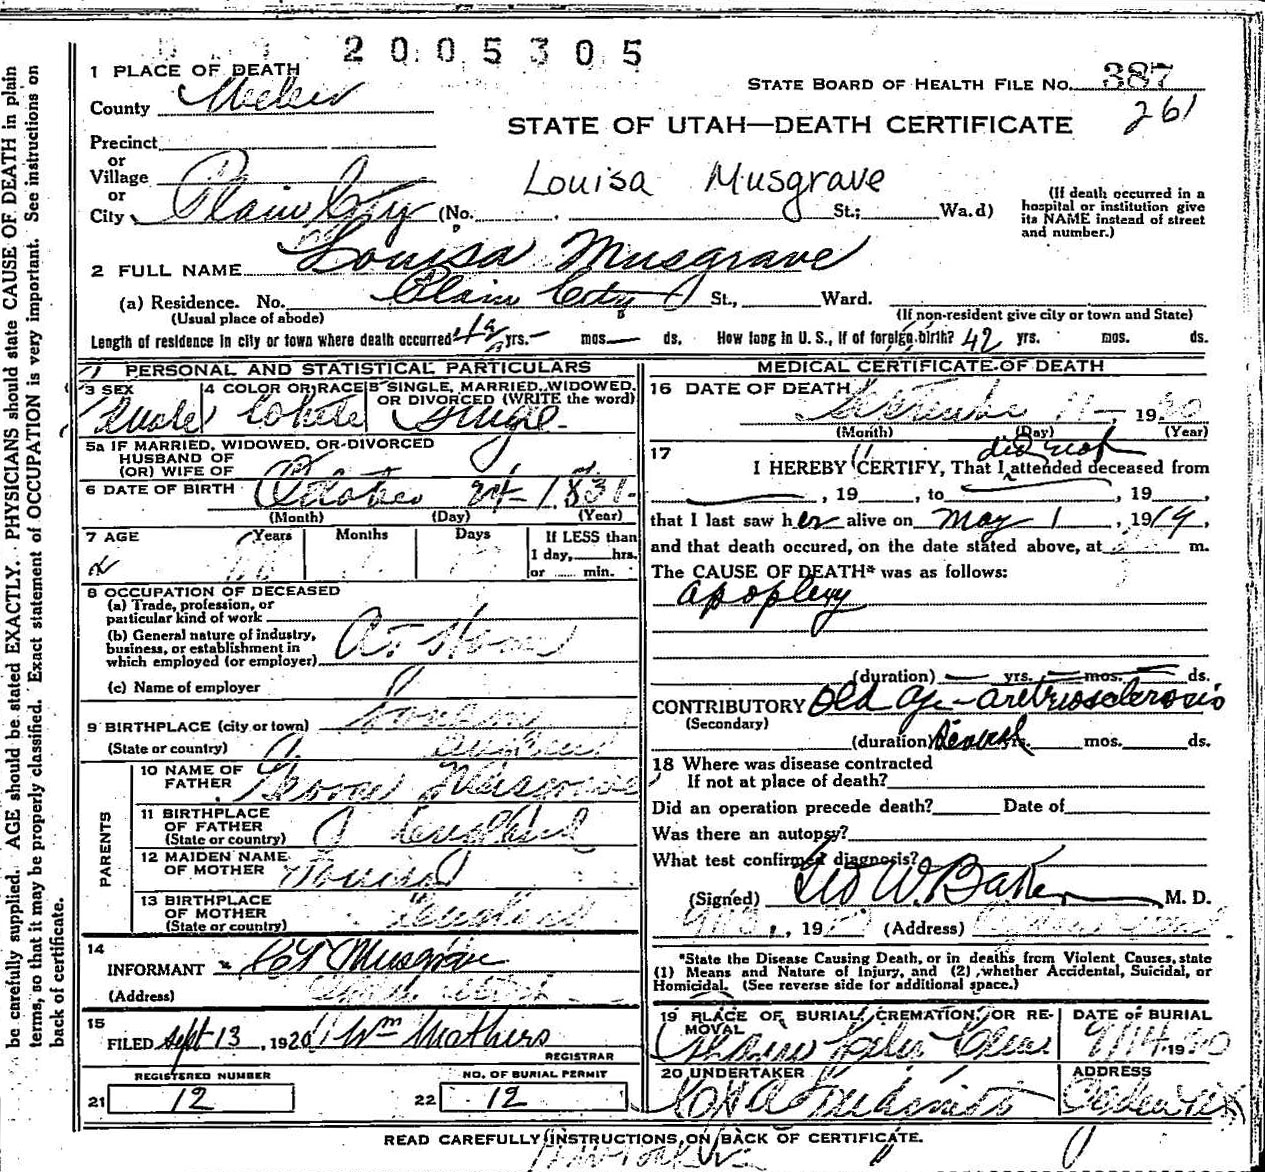 2005305
1 PLACE OF DEATH
STATE BOARD OF HEALTH FILE No. 387
County Weber
261
STATE OF UTAH—DEATH CERTIFICATE
Precinct
or
Village
or
City Plain City (No. St.; Wa.d)
Louisa Musgrave
(If death occurred in a
hospital or institution give
its NAME instead of street
and number.)
2 FULL NAME Louisa Musgrave
(a) Residence. No. Plain City St., Ward.
(Usual place of abode)
(If non-resident give city or town and State)
Length of residence in city or town where death occurred yrs.— mos.— ds. How long in U. S., if of foreign birth? 42 yrs. mos. ds.
PERSONAL AND STATISTICAL PARTICULARS
3 SEX
4 COLOR OR RACE
5 SINGLE, MARRIED, WIDOWED,
OR DIVORCED (WRITE the word)
Female White Single
5a IF MARRIED, WIDOWED, OR DIVORCED
HUSBAND OF
(OR) WIFE OF
6 DATE OF BIRTH October 24 1831
(Month) (Day) (Year)
7 AGE
Years Months Days
If LESS than
1 day, hrs.
or min.
8 OCCUPATION OF DECEASED
(a) Trade, profession, or
particular kind of work
(b) General nature of industry,
business, or establishment in
which employed (or employer) At Home
(c) Name of employer
9 BIRTHPLACE (city or town) London
(State or country) England
PARENTS
10 NAME OF
FATHER George Musgrave
11 BIRTHPLACE
OF FATHER England
(State or country)
12 MAIDEN NAME
OF MOTHER Louisa
13 BIRTHPLACE
OF MOTHER England
(State or country)
14
INFORMANT Musgrave
(Address)
15
FILED Sept 13, 1920 Wm Mathers
REGISTRAR
REGISTERED NUMBER
21 12
NO. OF BURIAL PERMIT
22 12
MEDICAL CERTIFICATE OF DEATH
16 DATE OF DEATH
September 11, 1920
(Month) (Day) (Year)
17
did not
I HEREBY CERTIFY, That I attended deceased from
, 19 , to , 19 ,
that I last saw her alive on May 1, 1919,
and that death occured, on the date stated above, at m.
The CAUSE OF DEATH* was as follows:
apoplexy
(duration) — yrs. — mos. — ds.
CONTRIBUTORY Old age - aretriosclerosis
(Secondary)
(duration) Several yrs. mos. ds.
18 Where was disease contracted
If not at place of death?
Did an operation precede death? Date of
Was there an autopsy?
What test confirmed diagnosis?
(Signed) Geo W. Baker M. D.
, 19 (Address)
*State the Disease Causing Death, or in deaths from Violent Causes, state
(1) Means and Nature of Injury, and (2) whether Accidental, Suicidal, or
Homicidal. (See reverse side for additional space.)
19 PLACE OF BURIAL, CREMATION, OR RE-
MOVAL
DATE OF BURIAL
9/14 1920
20 UNDERTAKER
ADDRESS
READ CAREFULLY INSTRUCTIONS ON BACK OF CERTIFICATE.
be carefully supplied. AGE should be stated EXACTLY. PHYSICIANS should state CAUSE OF DEATH in plain
terms, so that it may be properly classified. Exact statement of OCCUPATION is very important. See instructions on
back of certificate.